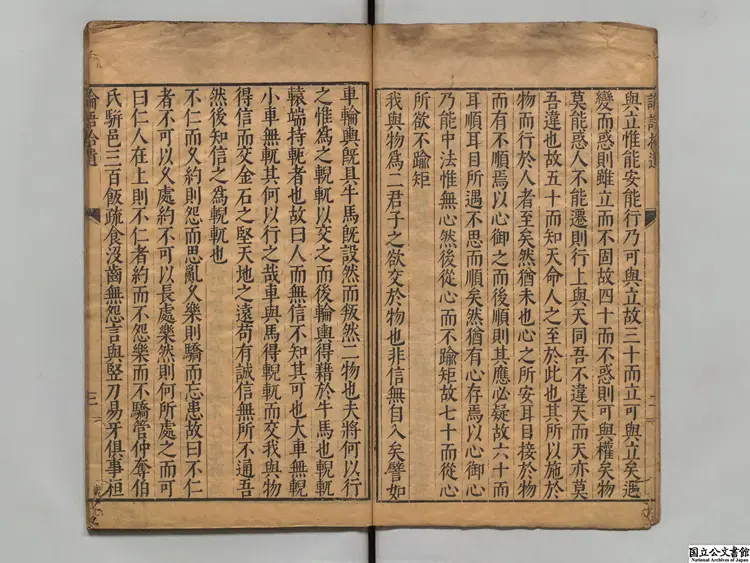 論語拾遺
二
與立惟能安能行乃可與立故三十而立可與立矣遇
變而惑則雖立而不固故四十而不惑則可與權矣物
莫能惑人不能遷則行上與天同吾不違天而天亦莫
吾違也故五十而知天命人之至於此也其所以施於
物而行於人者至矣然猶未也心之所安耳目接於物
而有不順焉以心御之而後順則其應必疑故六十而
耳順耳目所遇不思而順矣然猶有心存焉以心御心
乃能中法惟無心然後從心而不踰矩故七十而從心
所欲不踰矩
我與物爲二君子之欲交於物也非信無自入矣譬如
車輪輿既具牛馬既設然而叛然二物也夫將何以行
之惟爲之輗軏以交之而後輪輿得藉於牛馬也輗軏
轅端持軛者也故曰人而無信不知其可也大車無輗
小車無軏其何以行之哉車與馬得輗軏而交我與物
得信而交金石之堅天地之遠苟有誠信無所不通吾
然後知信之爲輗軏也
不仁而久約則怨而思亂久樂則驕而忘患故曰不仁
者不可以久處約不可以長處樂然則何所處之而可
曰仁人在上則不仁者約而不怨樂而不驕管仲奪伯
氏騈邑三百飯疏食沒齒無怨言與豎刀易牙俱事桓
論語拾遺
三
国立公文書館
National Archives of Japan